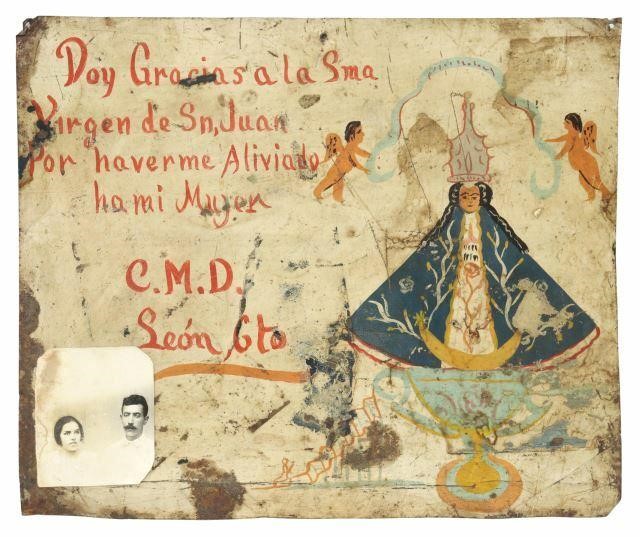 Doy Gracias a la Sma
Virgen de Sn, Juan
Por haverme Aliviado
ha mi Mujer
C. M. D.
León, Gto